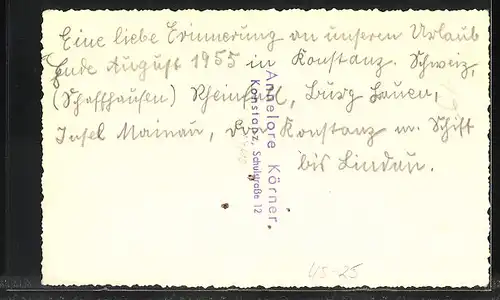 Eine liebe Erinnerung an unseren Urlaub
Ende August 1955 in Konstanz. Schweiz,
(Schaffhausen) Rheinfall, Burg Laufen,
Insel Mainau, Konstanz m. Schiff
bis Lindau.
Annelore Körner
Konstanz, Schulstraße 12
US-25